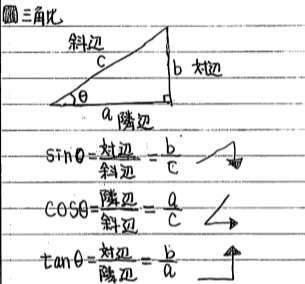 圖三角比
斜辺
c
b 対辺
θ
a 隣辺
sinθ=対辺/斜辺=b/c
cosθ=隣辺/斜辺=a/c
tanθ=対辺/隣辺=b/a